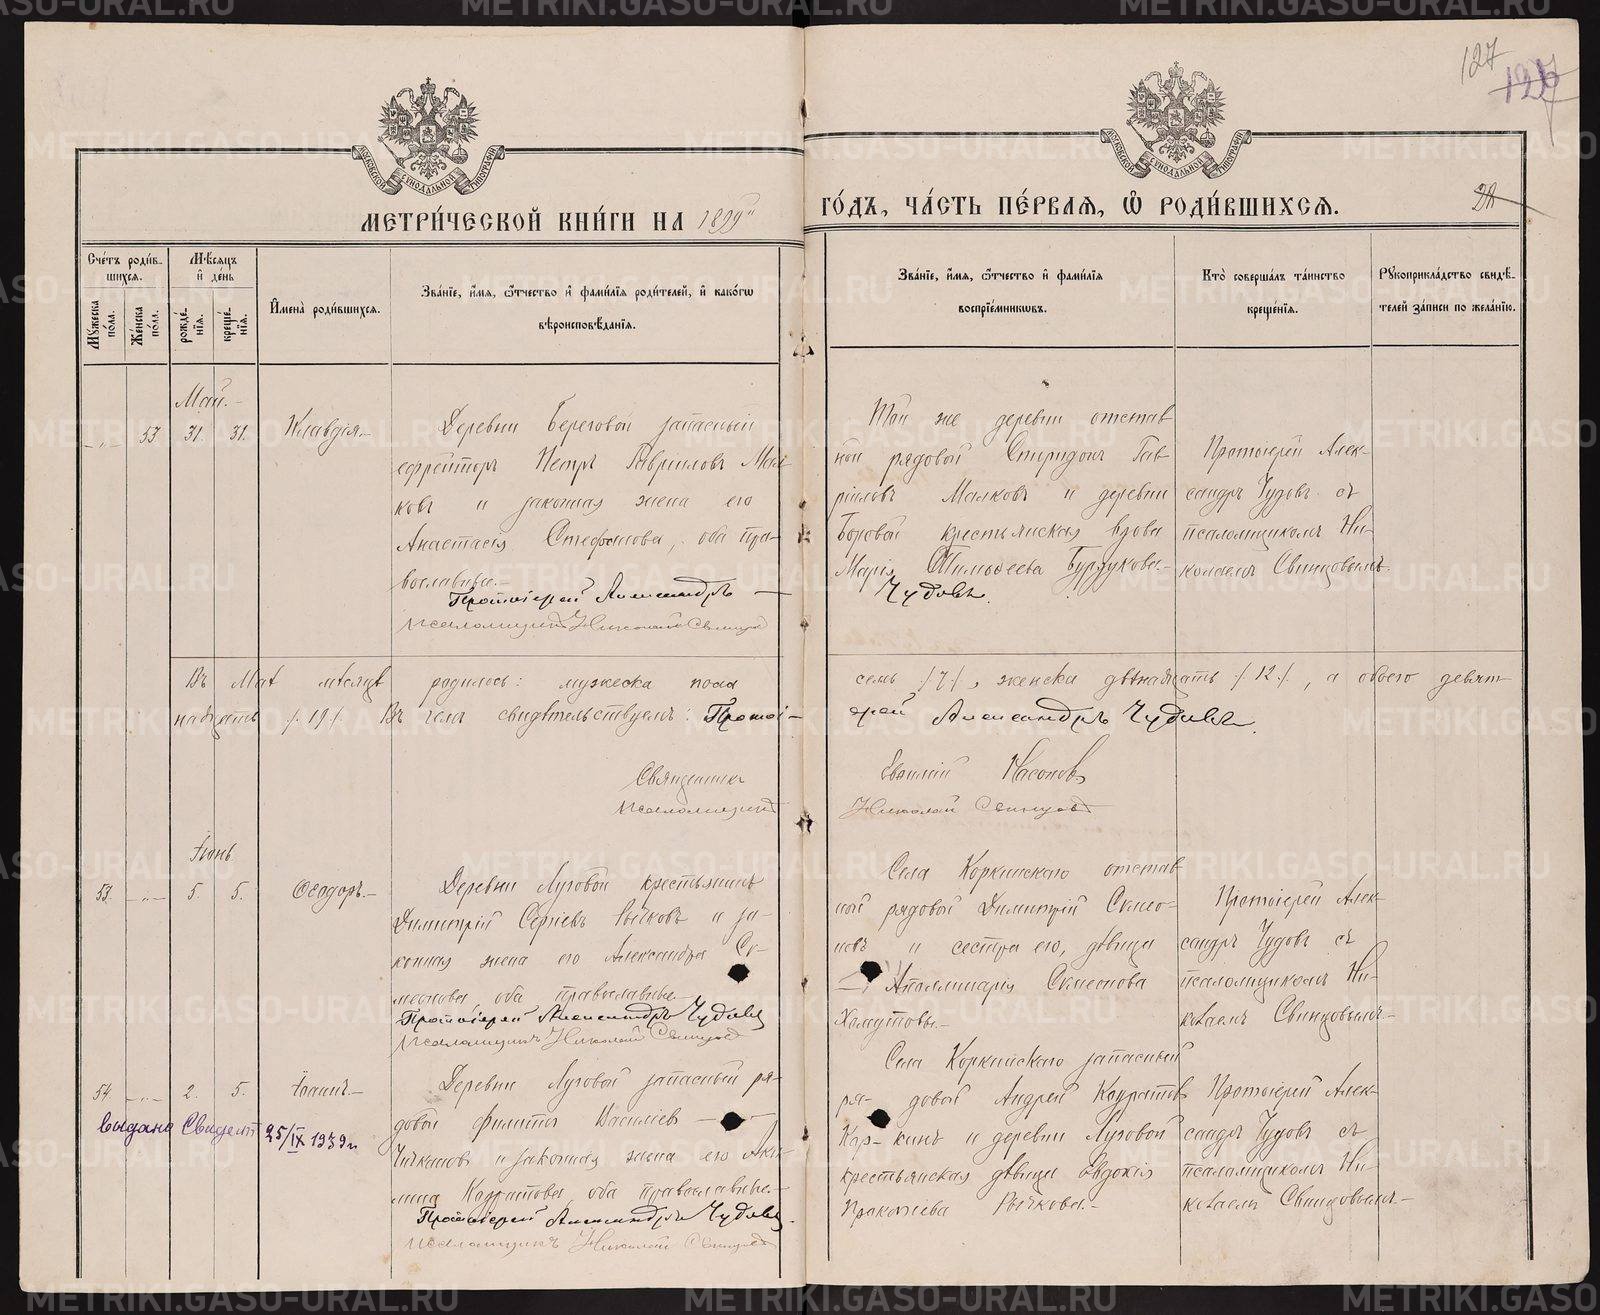 127
127
МЕТРИ́ЧЕСКОЙ КНИ́ГИ НА 1899й
ГО́ДЪ, ЧА́СТЬ ПЕ́РВАЯ, Ѡ҆ РОДИ́ВШИХСЯ.
Сче́тъ роди́в-
шихся.
Мꙋ́жеска
по́ла.
Же́нска
по́ла.
Мѣ́сяцъ
и҆ де́нь
рожде́-
нїя.
креще́-
нїя.
И҆мена̀ роди́вшихся.
Зва́нїе, и҆́мя, ѻ҆́тчество и҆ фами́лїя роди́телей, и҆ како́гѡ
вѣроисповѣ́данїя.
Зва́нїе, и҆́мя, ѻ҆́тчество и҆ фами́лїя
воспрїе́мникѡвъ.
Кто̀ соверша́лъ та́инство
креще́нїя.
Рꙋкоприкла́дство свидѣ́-
телей за́писи по жела́нїю.
Май.-
-„- 53 31. 31. Клавдія.-
Деревни Береговой запасный
ефрейторъ Петръ Гавриловъ Мал-
ковъ и законная жена его
Анастасія Стефанова, оба пра-
вославные.-
Протоіерей Александръ
псаломщикъ Николай Свинцовъ
Той же деревни отстав
ной рядовой Спиридонъ Гав
ріиловъ Малковъ и деревни
Боровой крестьянская вдова
Марія Тимоѳеева Бурдукова.-
Чудовъ.
Протоіерей Алек-
сандръ Чудовъ съ
псаломщикомъ Ни-
колаемъ Свинцовымъ.
Въ Маѣ мѣсяцѣ родилось: мужеска пола семь /7/, женска двѣнадцать /12/, а обоего девят
надцать /19/. Въ чемъ свидѣтельствуемъ: Протоі-
ерей Александръ Чудовъ.
Священникъ Евѳимій Насоновъ
псаломщикъ Николай Свинцовъ
Іюнь
53. -„- 5. 5. Ѳеодоръ.-
Деревни Луговой крестьянинъ
Димитрій Сергіевъ Рычковъ и за-
конная жена его Александра Си-
меонова, оба православные.-
Протоіерей Александръ Чудовъ
псаломщикъ Николай Свинцовъ
Села Коркинскаго отстав
ной рядовой Димитрій Симео-
новъ и сестра его, дѣвица
Аполлинарія Симеонова
Хомутовы.-
Протоіерей Алек-
сандръ Чудовъ съ
псаломщикомъ Ни-
колаемъ Свинцовымъ.-
54. -„- 2. 5. Іоаннъ.-
Выдано Свидет 25/IX 1939 г.
Деревни Луговой запасный ря-
довой Филиппъ Васильевъ
Чичкановъ и законная жена его Аки-
лина Кодратова, оба православные.-
Протоіерей Александръ Чудовъ.
псаломщикъ Николай Свинцовъ
Села Коркинскаго запасный
ря- довой Андрей Кодратов
Кор- кинъ и деревни Луговой
крестьянская дѣвица Евдокія
Прокопіева Рычкова.-
Протоіерей Алек-
сандръ Чудовъ съ
псаломщикомъ Ни-
колаемъ Свинцовымъ.-
METRIKI.GASO-URAL.RU